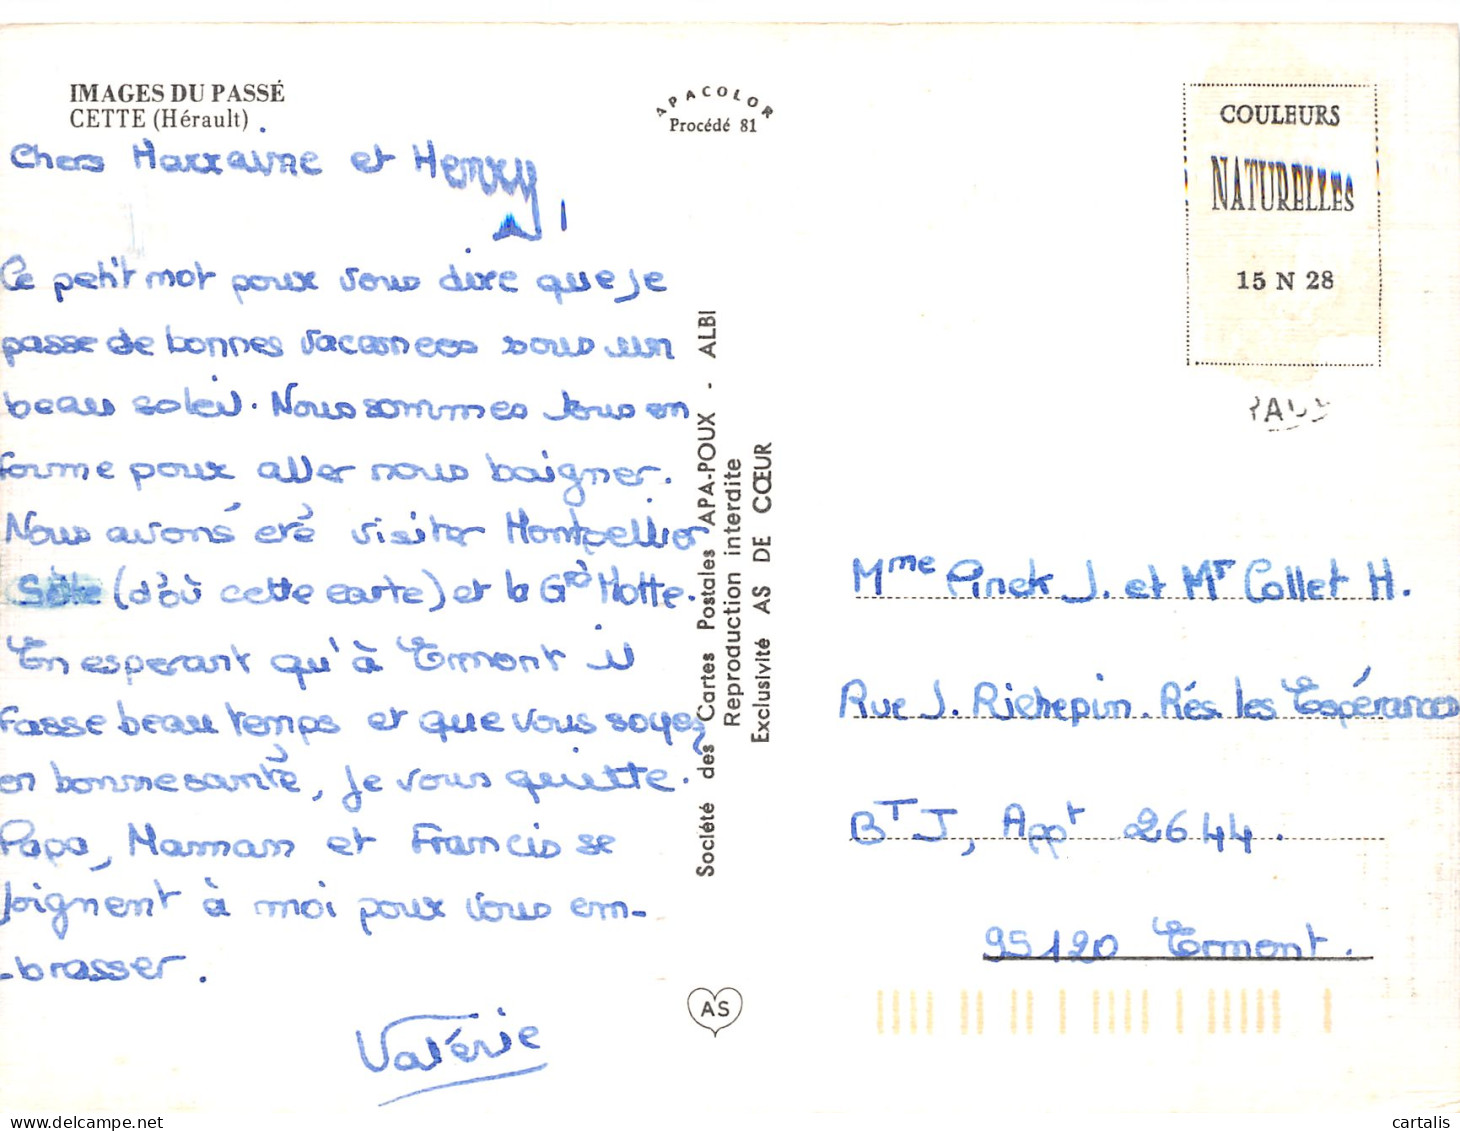 IMAGES DU PASSÉ
CETTE (Hérault)
APACOLOR
Procédé 81
COULEURS
NATURELLES
15 N 28
Chers Marraine et Henry,
Ce petit mot pour vous dire que je
passe de bonnes vacances sous un
beau soleil. Nous sommes tous en
forme pour aller nous baigner.
Nous avons été visiter Montpellier
Sète (d'où cette carte) et la Grd Motte.
En esperant qu'à Ermont il
fasse beau temps et que vous soyez
en bonne santé, je vous quitte.
Papa, Maman et Francis se
joignent à moi pour vous em-
-brasser.
Valérie
Société des Cartes Postales APA-POUX - ALBI
Reproduction interdite
Exclusivité AS DE CŒUR
AS
Mme Pinck J. et Mr Collet H.
Rue J. Richepin. Rés les Espérances
BT J, Appt 2644.
95120 Ermont.
cartalis